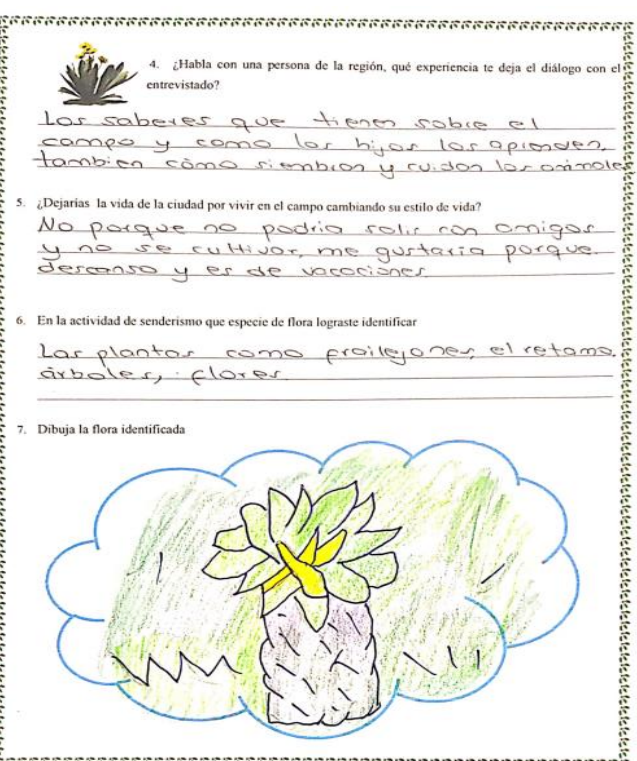 4. ¿Habla con una persona de la región, qué experiencia te deja el diálogo con el
entrevistado?
Los saberes que tienen sobre el
campo y como los hijos los aprenden,
tambien cómo siembran y cuidan los animales
5. ¿Dejarías la vida de la ciudad por vivir en el campo cambiando su estilo de vida?
No porque no podria salir con amigos
y no se cultivar, me gustaria porque
descanso y es de vacaciones
6. En la actividad de senderismo que especie de flora lograste identificar
Las plantas como frailejones, el retamo,
árboles, flores
7. Dibuja la flora identificada